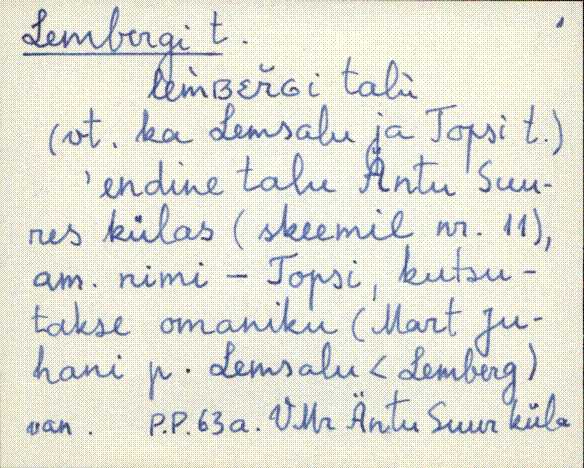 Lembergi t.
lem̀ʙᴇřɢi talù
(vt. ka Lemsalu ja Topsi t.)
'endine talu Äntu Suu-
res külas (skeemil nr. 11),
am. nimi – Topsi, kutsu-
takse omaniku (Mart Ju-
hani p. Lemsalu < Lemberg)
van. P.P. 63 a. VMr Äntu Suurküla